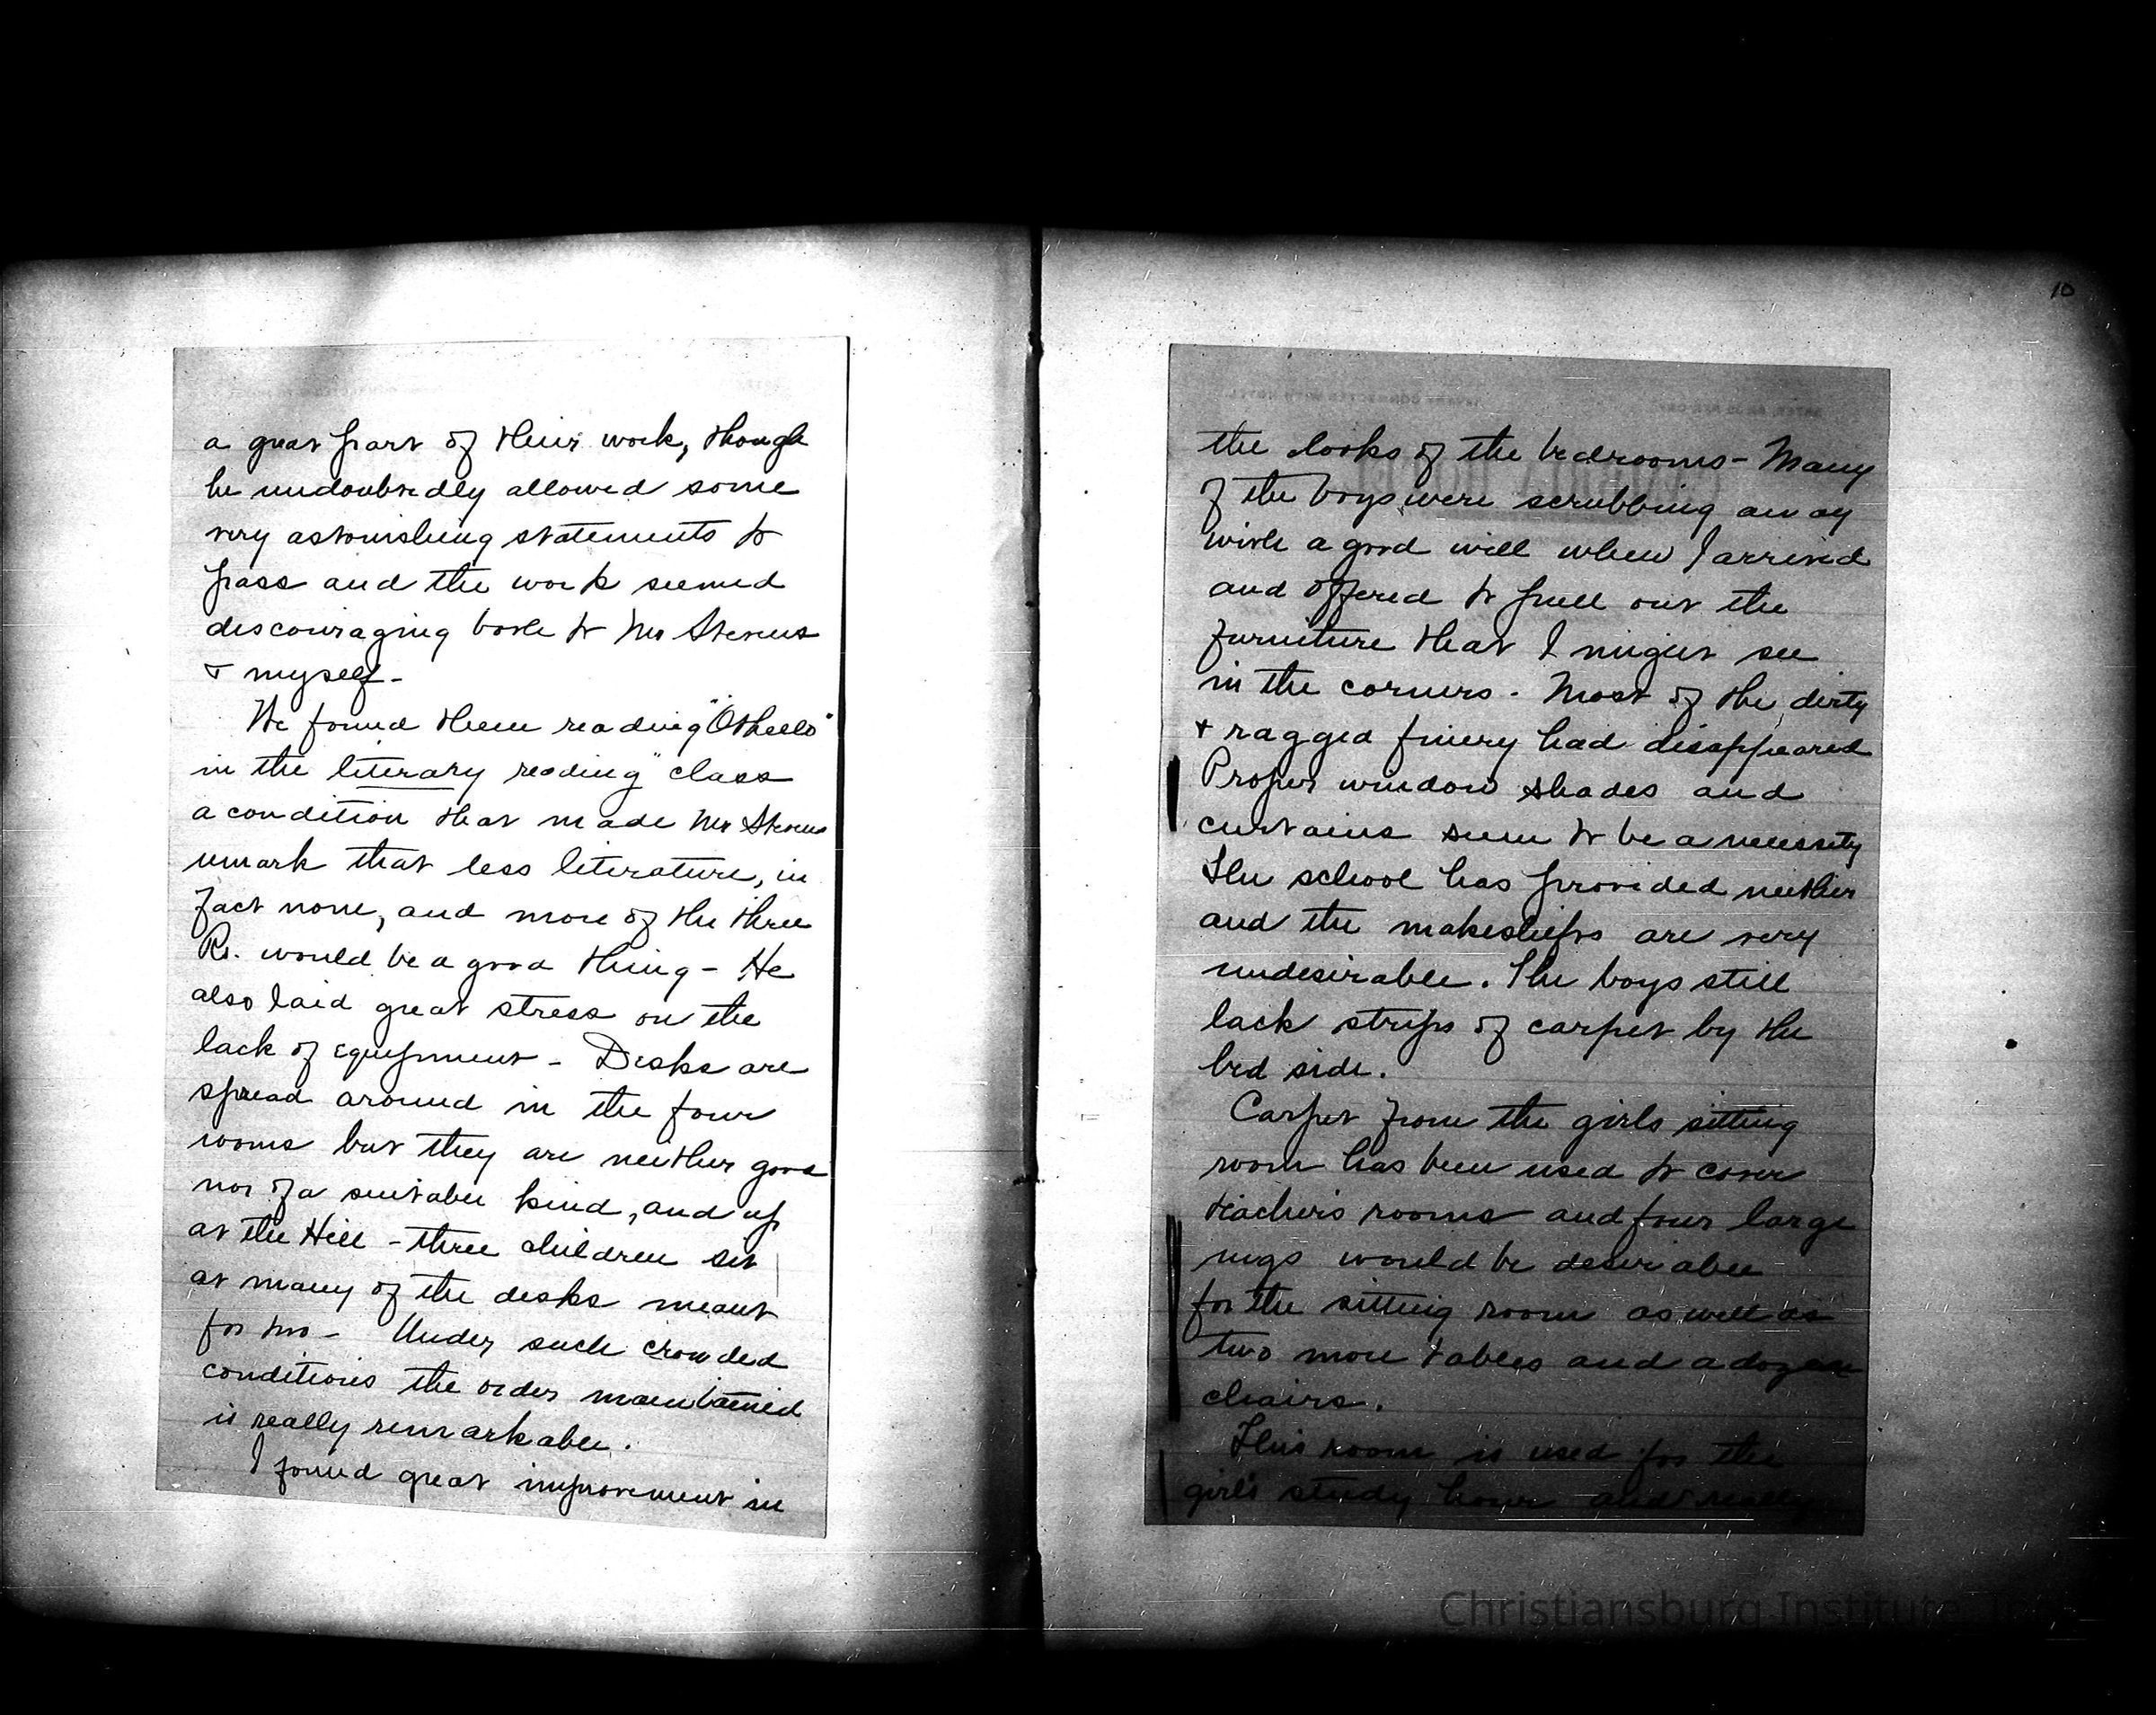 a great part of their work, though
he undoubtedly allowed some
very astonishing statements to
pass and the work seemed
discouraging both to Mr Stevens
& myself -
We found them reading "Othello"
in the literary reading" class
a condition that made Mr Stevens
remark that less literature, in
fact none, and more of the three
Rs. would be a good thing - He
also laid great stress on the
lack of equipment - Desks are
spread around in the four
rooms but they are neither good
nor of a suitable kind, and up
at the Hill - three children sit
at many of the desks meant
for two - Under such crowded
conditions the order maintained
is really remarkable.
I found great improvement in
10
the looks of the bedrooms - Many
of the boys were scrubbing away
with a good will when I arrived
and offered to pull out the
furniture that I might see
in the corners. Most of the dirty
& ragged finery had disappeared
Proper window shades and
curtains seem to be a necessity
The school has provided neither
and the makeshifts are very
undesirable. The boys still
lack strips of carpet by the
bed side.
Carpet from the girls sitting
room has been used to cover
teachers rooms and four large
rugs would be desirable
for the sitting room as well as
two more tables and a dozen
chairs.
This room is used for the
girls study hour and really
Christiansburg Institute,